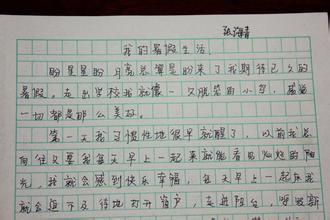 张海青
我的暑假生活
盼星星盼月亮总算是盼来了我期待已久的
暑假。走出学校我就像一只脱笼的小鸟，感觉
一切都是那么美好。
第一天我习惯性地很早就醒了，以前我总
向往又要我每天早上一起来就能看见灿烂的阳
光，我就会感到快乐幸福，每天早上一起床我
就会迫不及待地打开窗户，走进阳台，呼吸新